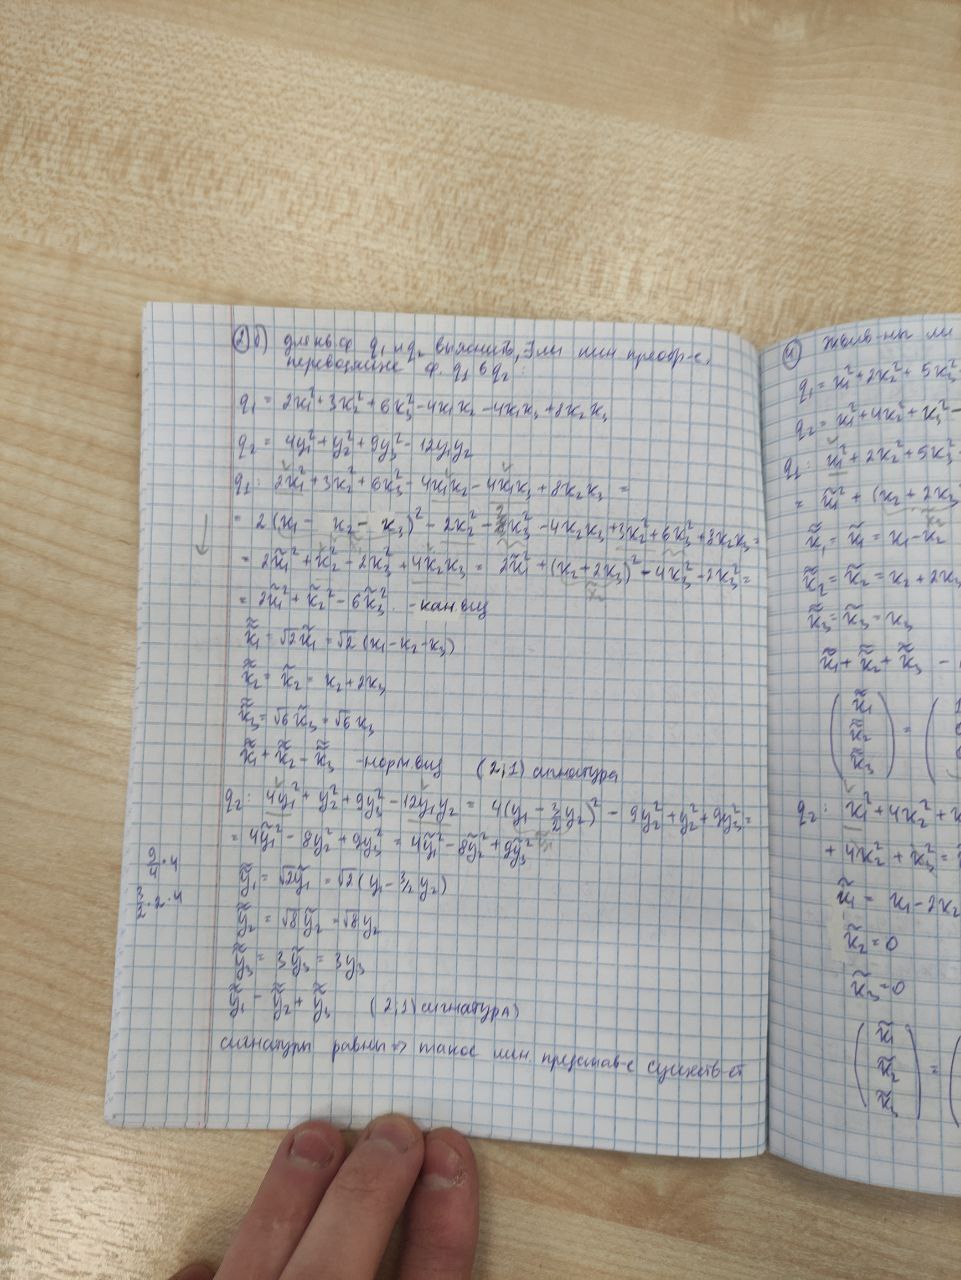 ② б) для кв.ф q₁ и q₂ выяснить, ∃ ли лин преобр-е,
переводящее ф. q₁ в q₂:
q₁ = 2x₁² + 3x₂² + 6x₃² - 4x₁x₂ - 4x₁x₃ + 8x₂x₃
q₂ = 4y₁² + y₂² + 9y₃² - 12y₁y₂
q₁: 2x₁² + 3x₂² + 6x₃² - 4x₁x₂ - 4x₁x₃ + 8x₂x₃ =
= 2(x₁ - x₂ - x₃)² - 2x₂² - 2x₃² - 4x₂x₃ + 3x₂² + 6x₃² + 8x₂x₃ =
= 2x̃₁² + x₂² - 2x₃² + 4x₂x₃ = 2x̃₁² + (x₂ + 2x₃)² - 4x₃² - 2x₃² =
x̃₂
= 2x̃₁² + x̃₂² - 6x̃₃² - кан вид
x̃̃₁ = √2x̃₁ = √2(x₁ - x₂ - x₃)
x̃̃₂ = x̃₂ = x₂ + 2x₃
x̃̃₃ = √6x̃₃ = √6x₃
x̃̃₁ + x̃̃₂ - x̃̃₃ - норм вид (2;1) сигнатура
q₂: 4y₁² + y₂² + 9y₃² - 12y₁y₂ = 4(y₁ - 3/2 y₂)² - 9y₂² + y₂² + 9y₃² =
= 4ỹ₁² - 8y₂² + 9y₃² = 4ỹ₁² - 8ỹ₂² + 9ỹ₃²
9/4 · 4
3/2 · 2 · 4
ỹ̃₁ = √2ỹ₁ = √2(y₁ - 3/2 y₂)
ỹ̃₂ = √8ỹ₂ = √8y₂
ỹ̃₃ = 3ỹ₃ = 3y₃
ỹ̃₁ - ỹ̃₂ + ỹ̃₃ (2;1) сигнатура
сигнатуры равны => такое лин представ-е существ-ет
q₁ = x₁² + 2x₂² + 5x₃²
q₂ = x₁² + 4x₂² + x₃² -
q₁: x₁² + 2x₂² + 5x₃²
= x̃₁² + (x₂ + 2x₃
x̃̃₁ = x̃₁ = x₁ - x₂
x̃̃₂ = x̃₂ = x₂ + 2x₃
x̃̃₃ = x̃₃ = x₃
x̃̃₁ + x̃̃₂ + x̃̃₃ -
(x̃̃₁
x̃̃₂ =
x̃̃₃)
q₂: x₁² + 4x₂² + x
+ 4x₂² + x₃² =
x̃₁ = x₁ - 2x₂
x̃₂ = 0
x̃₃ = 0
(x̃̃₁
x̃̃₂ =
x̃̃₃)